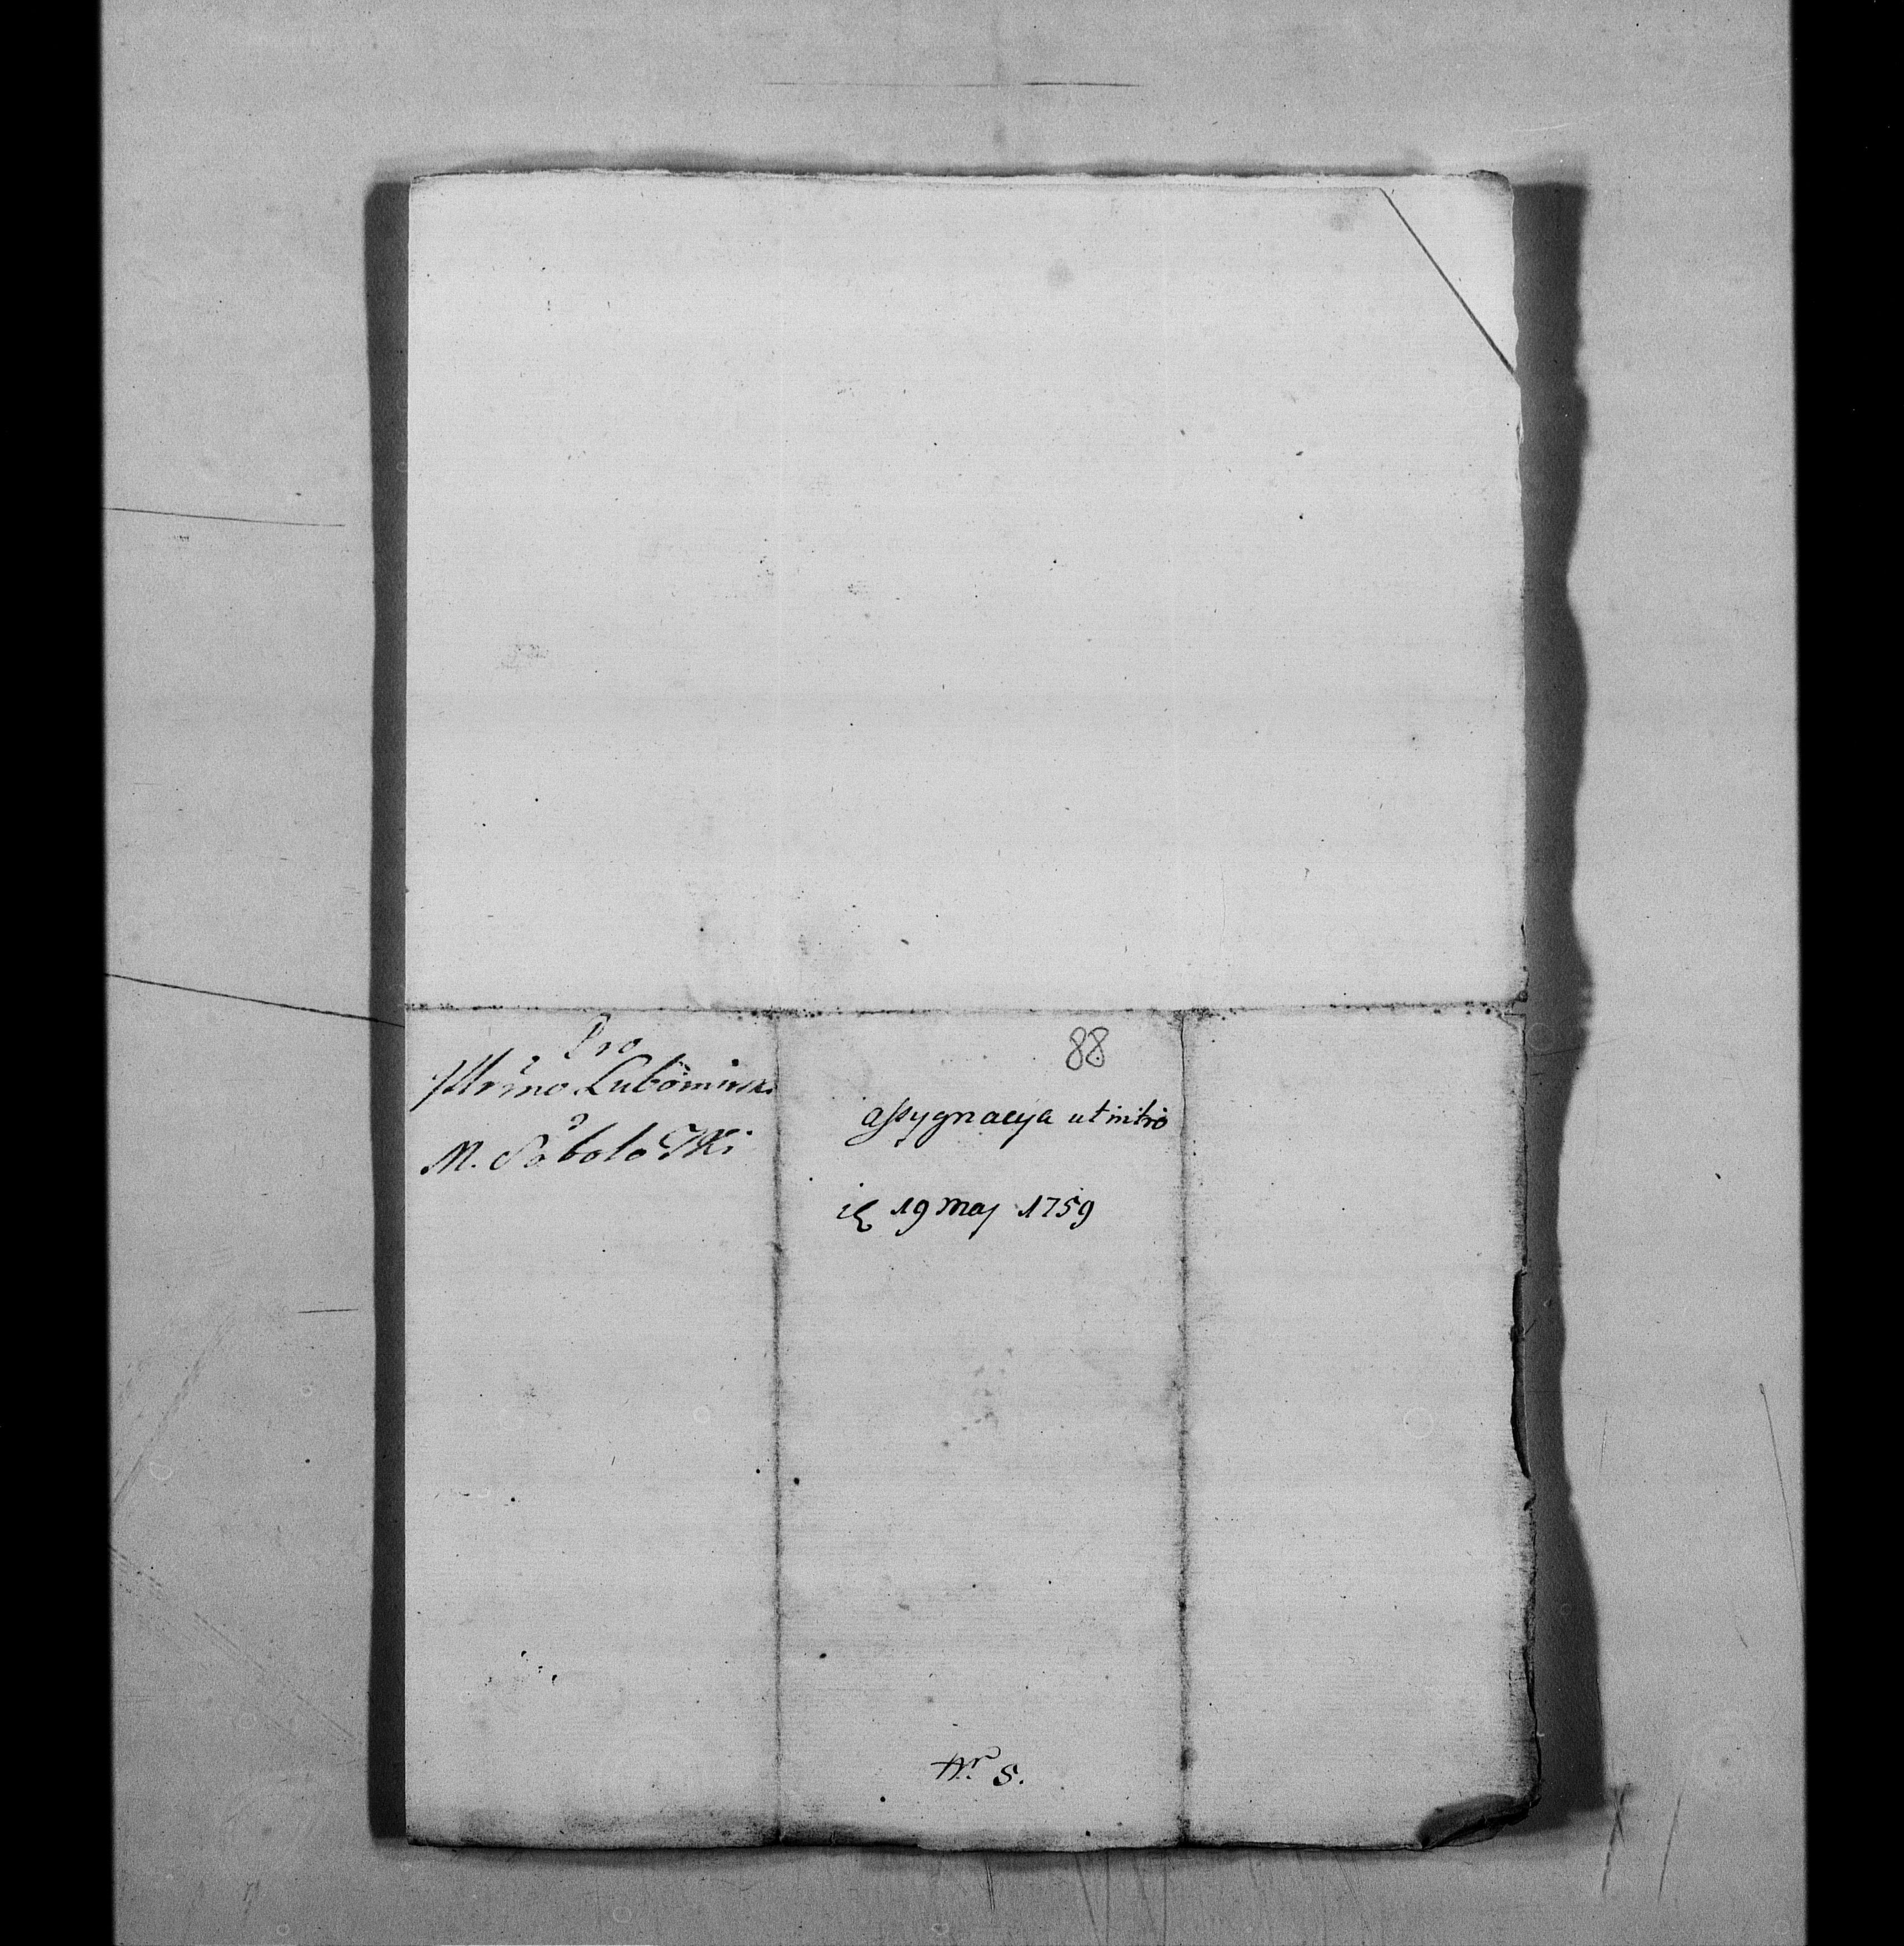 Pro
Illrimo Lubomirski
M. Sobolewski
88
assygnacya ut intro
19 Maj 1759
Nr 5.